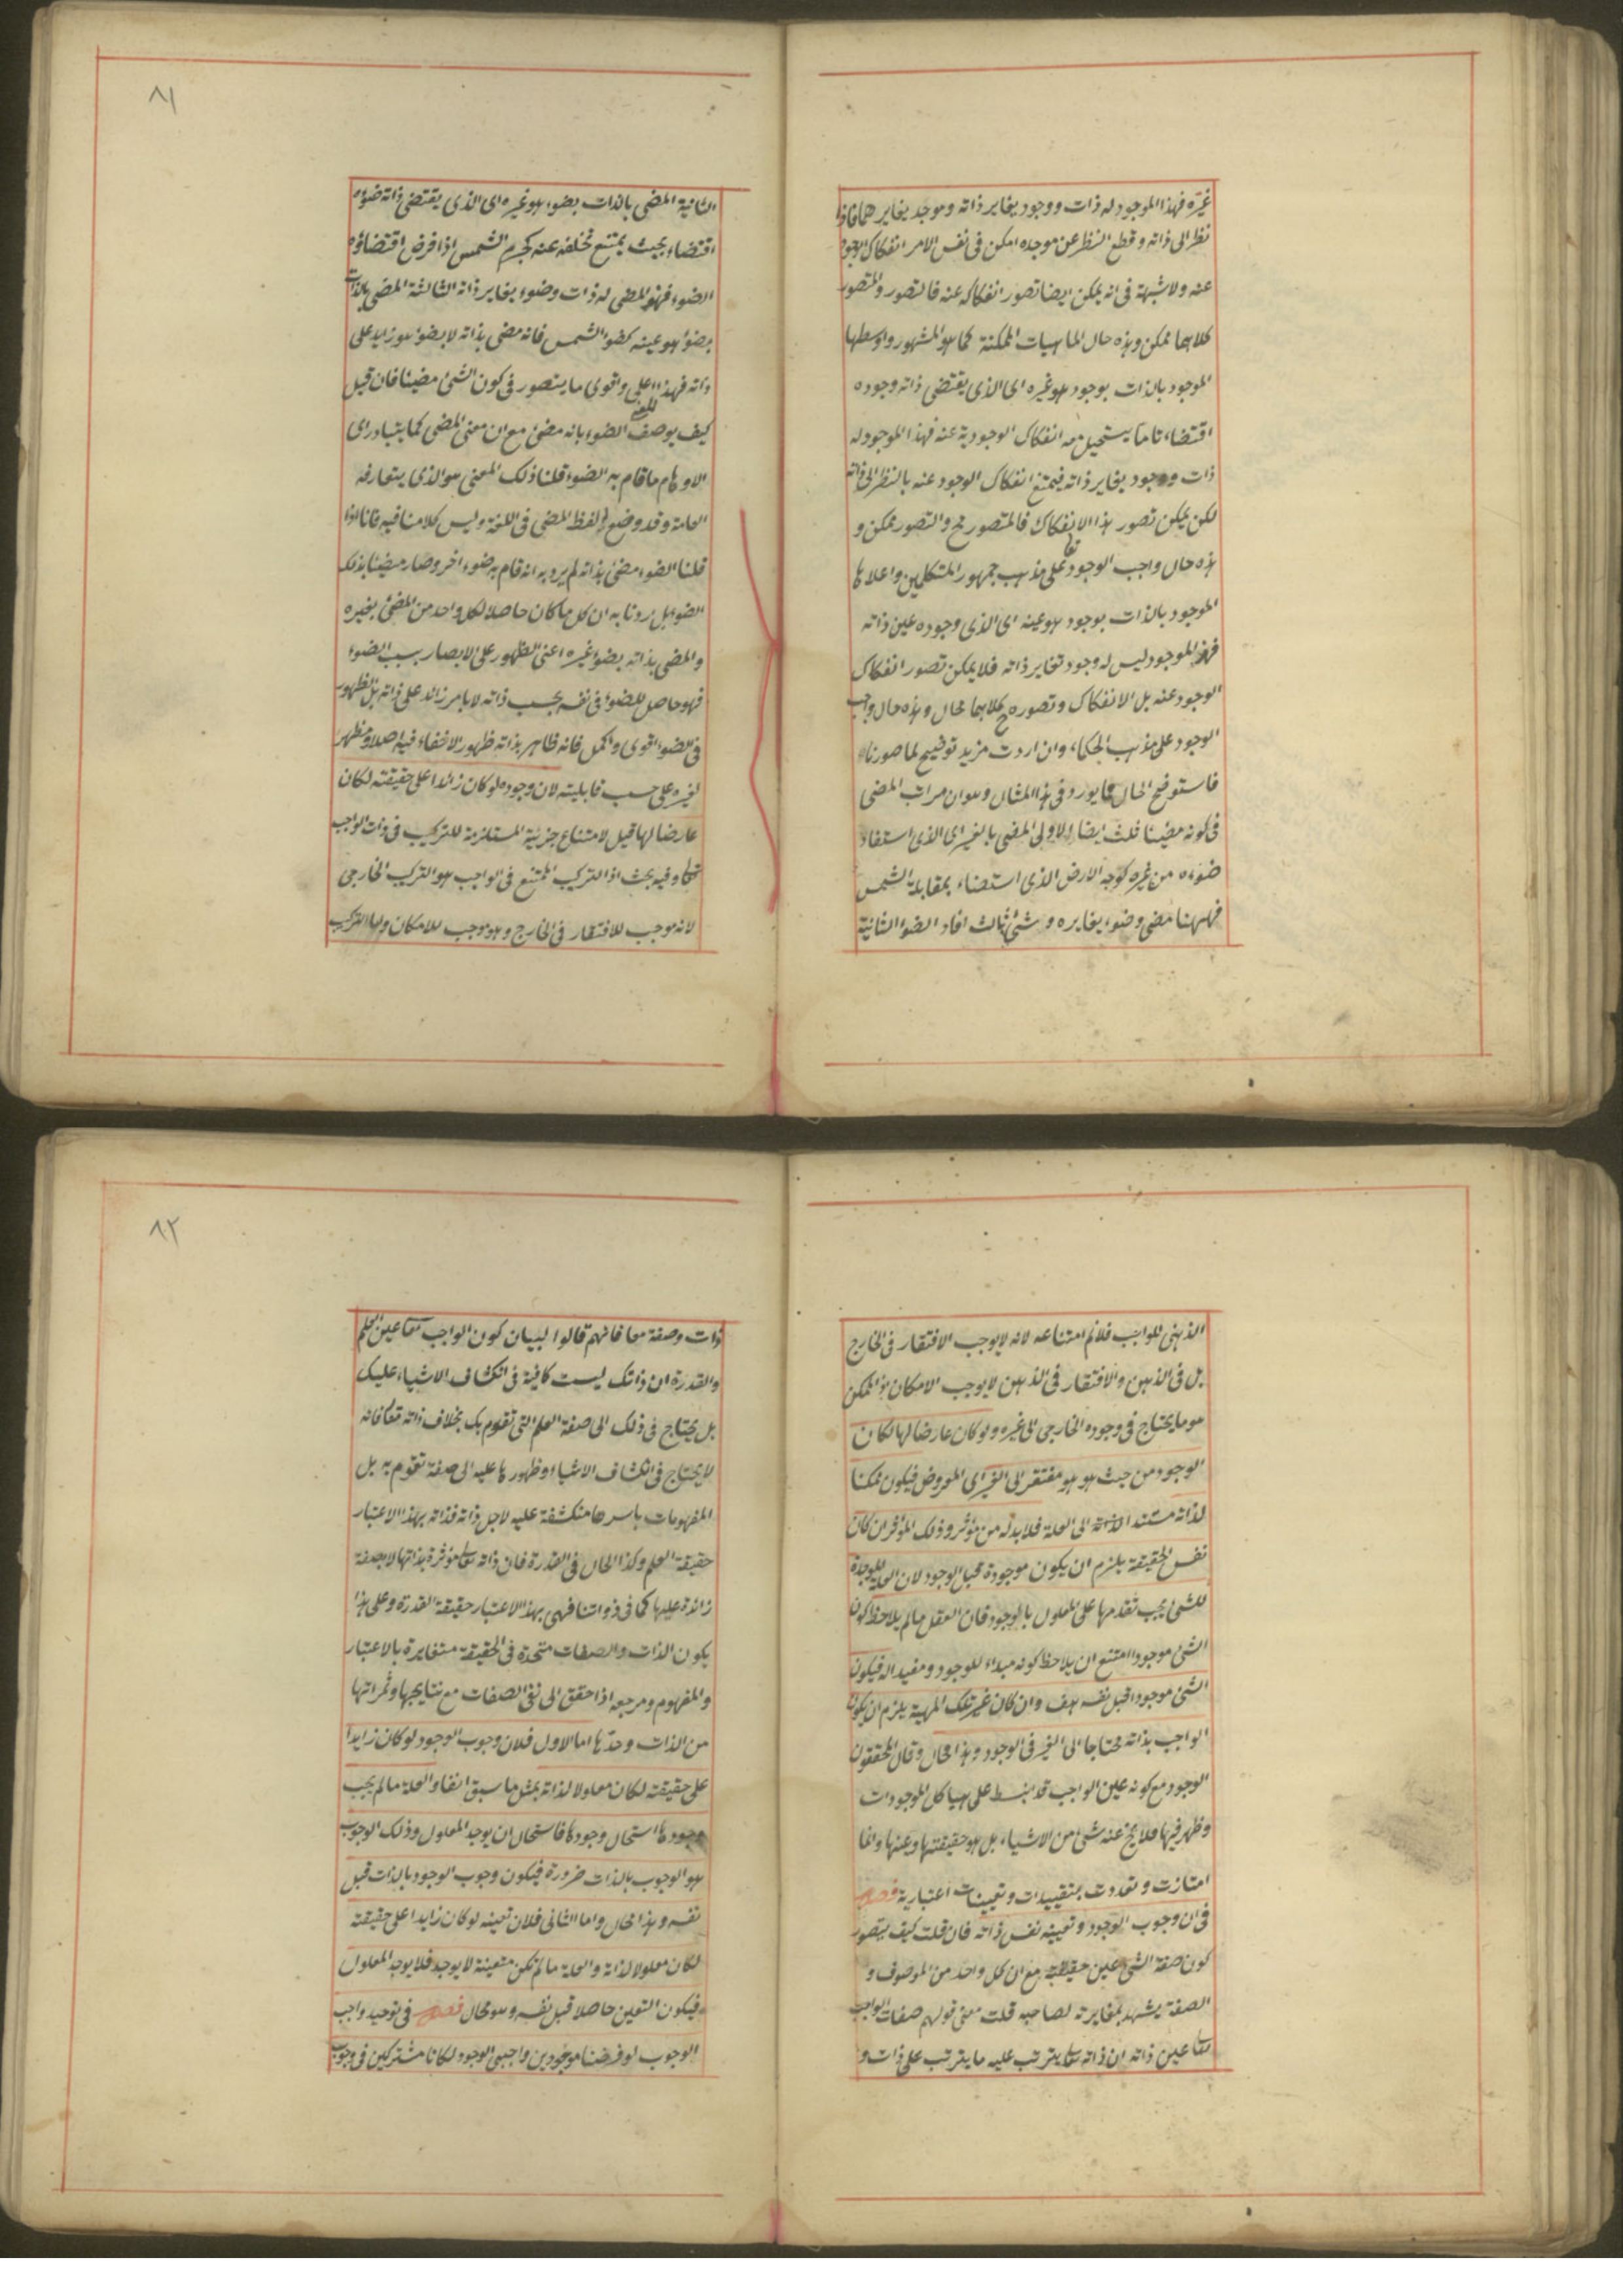 غيره فهذا الموجود له ذات ووجود يغاير ذاته وموجد يغايرهما فاذا
نظر الى ذاته وقطع النظر عن موجده امكن في نفس الامر انفكاك الوجود
عنه ولا شبهة في انه يمكن ايضا تصور انفكاكه عنه فالتصور والمتصور
كلاهما ممكن وهذه حال الماهيات الممكنة كما هو المشهور واوسطها
الموجود بالذات بوجود هو غيره اى الذى يقتضى ذاته وجوده
اقتضاء تاما يستحيل معه انفكاك الوجود عنه فهذا الموجود له
ذات ووجود يغاير ذاته فيمتنع انفكاك الوجود عنه بالنظر الى ذاته
لكن يمكن تصور هذا الانفكاك فالمتصور مح والتصور ممكن و
هذه حال واجب الوجود تعا على مذهب جمهور المتكلمين واعلاها
الموجود بالذات بوجود هو عينه اى الذى وجوده عين ذاته
فهذا الموجود ليس له وجود تغاير ذاته فلا يمكن تصور انفكاك
الوجود عنه بل الانفكاك وتصوره كلاهما محال وهذه حال واجب
الوجود على مذهب الحكماء وان اردت مزيد توضيح لما صورناه
فاستوضح الحال مما يورد في هذا المثال وهو ان مراتب المضى
في كونه مضيئا ثلث ايضا الاولى المضى بالغير اى الذى استفاد
ضوءه من غيره كوجه الارض الذى استضاء بمقابلة الشمس
فههنا مضى وضوء يغايره وشئ ثالث افاد الضوء الثانية
٨١
الثانية المضى بالذات بضوء هو غيره اى الذى يقتضى ذاته ضوءه
اقتضاء بحيث يمتنع تخلفه عنه كجرم الشمس اذا فرض اقتضاؤه
الضوء فهذا المضى له ذات وضوء يغاير ذاته الثالثة المضى بالذات
بضوء هو عينه كضوء الشمس فانه مضى بذاته لا بضوء هو زايد على
ذاته فهذا اعلى واقوى ما يتصور في كون الشئ مضيئا فان قيل
كيف يوصف الضوء بانه مضئ مع ان معنى المضى كما يتبادر اى
الاوهام ما قام به الضوء قلنا ذلك المعنى هو الذى يتعارفه
العامة وقد وضع له لفظ المضى في اللغة وليس كلامنا فيه فانا اذا
قلنا الضوء مضئ بذاته لم يرد به انه قام به ضوء اخر وصار مضيئا بذلك
الضوء بل اردنا به ان كل ما كان حاصلا لكل واحد من المضئ بغيره
والمضى بذاته بضوء غيره اعنى الظهور على الابصار بسبب الضوء
فهو حاصل للضوء في نفسه بحسب ذاته لا بامر زائد على ذاته بل الظهور
في الضوء اقوى واكمل فانه ظاهر بذاته ظهور الاخفاء فيه اصلا ومظهر
لغيره على حسب قابليته لان وجوده لو كان زائدا على حقيقته لكان
عارضا لها قيل لامتناع جزئية المستلزمة للتركيب في ذات الواجب
تعا وفيه بحث اذ التركيب الممتنع في الواجب هو التركيب الخارجى
لانه موجب للافتقار في الخارج وهو موجب للامكان واما التركيب
الذهنى للواجب فلانم امتناعه لانه لا يوجب الافتقار في الخارج
بل في الذهن والافتقار في الذهن لا يوجب الامكان اذ الممكن
هو ما يحتاج في وجوده الخارجى الى غيره ولو كان عارضا لها لكان
الوجود من حيث هو هو مفتقرا الى الغير اى المعروض فيكون ممكنا
لذاته مستندا لذاته الى العلة فلا بد له من مؤثر وذلك المؤثر ان كان
نفس الحقيقة يلزم ان يكون موجودة قبل الوجود لان العلة الموجدة
للشئ يجب تقدمها على المعلول بالوجود فان العقل مالم يلاحظ كون
الشئ موجودا امتنع ان يلاحظ كونه مبداء للوجود ومفيدا له فيكون
الشئ موجودا قبل نفسه هف وان كان غير تلك المهية يلزم ان يكون
الواجب بذاته محتاجا الى الغير في الوجود وهذا محال وقال المحققون
الوجود مع كونه عين الواجب قد انبسط على هياكل الموجودات
وظهر فيها فلا يخ عنه شئ من الاشياء بل هو حقيقتها وعينها وانما
امتازت وتعددت بتقييدات وتعينات اعتبارية فصل
في ان وجوب الوجود وتعينه نفس ذاته فان قلت كيف يتصور
كون صفة الشئ عين حقيقته مع ان كل واحد من الموصوف و
الصفة يشهد بمغايرته لصاحبه قلت معنى قولهم صفات الواجب
تعا عين ذاته ان ذاته تعا يترتب عليه ما يترتب على ذات و
٨٢
ذات وصفة معا فانهم قالوا لبيان كون الواجب تعا عين العلم
والقدرة ان ذاتك ليست كافية في انكشاف الاشياء عليك
بل يحتاج في ذلك الى صفة العلم التى تقوم بك بخلاف ذاته تعا فانه
لا يحتاج في انكشاف الاشياء وظهورها عليه الى صفة تقوم به بل
المفهومات باسرها منكشفة عليه لاجل ذاته فذاته بهذا الاعتبار
حقيقة العلم وكذا الحال في القدرة فان ذاته تعا مؤثرة بذاتها لا بصفة
زائدة عليها كما في ذواتنا فهى بهذا الاعتبار حقيقة القدرة وعلى هذا
يكون الذات والصفات متحدة في الحقيقة متغايرة بالاعتبار
والمفهوم ومرجعه اذا حقق الى نفى الصفات مع نتايجها وثمراتها
من الذات وحدها اما الاول فلان وجوب الوجود لو كان زايدا
على حقيقته لكان معلولا لذاته بمثل ما سبق انفا والعلة مالم يجب
وجودها استحال وجودها فاستحال ان يوجد المعلول وذلك الوجوب
هو الوجوب بالذات ضرورة فيكون وجوب الوجود بالذات قبل
نفسه وهذا محال واما الثانى فلان تعينه لو كان زايدا على حقيقته
لكان معلولا لذاته والعلة مالم تكن متعينة لا يوجد فلا يوجد المعلول
فيكون التعين حاصلا قبل نفسه وهو محال فصل في توحيد واجب
الوجوب لو فرضنا موجودين واجبى الوجود لكانا مشتركين في وجوب